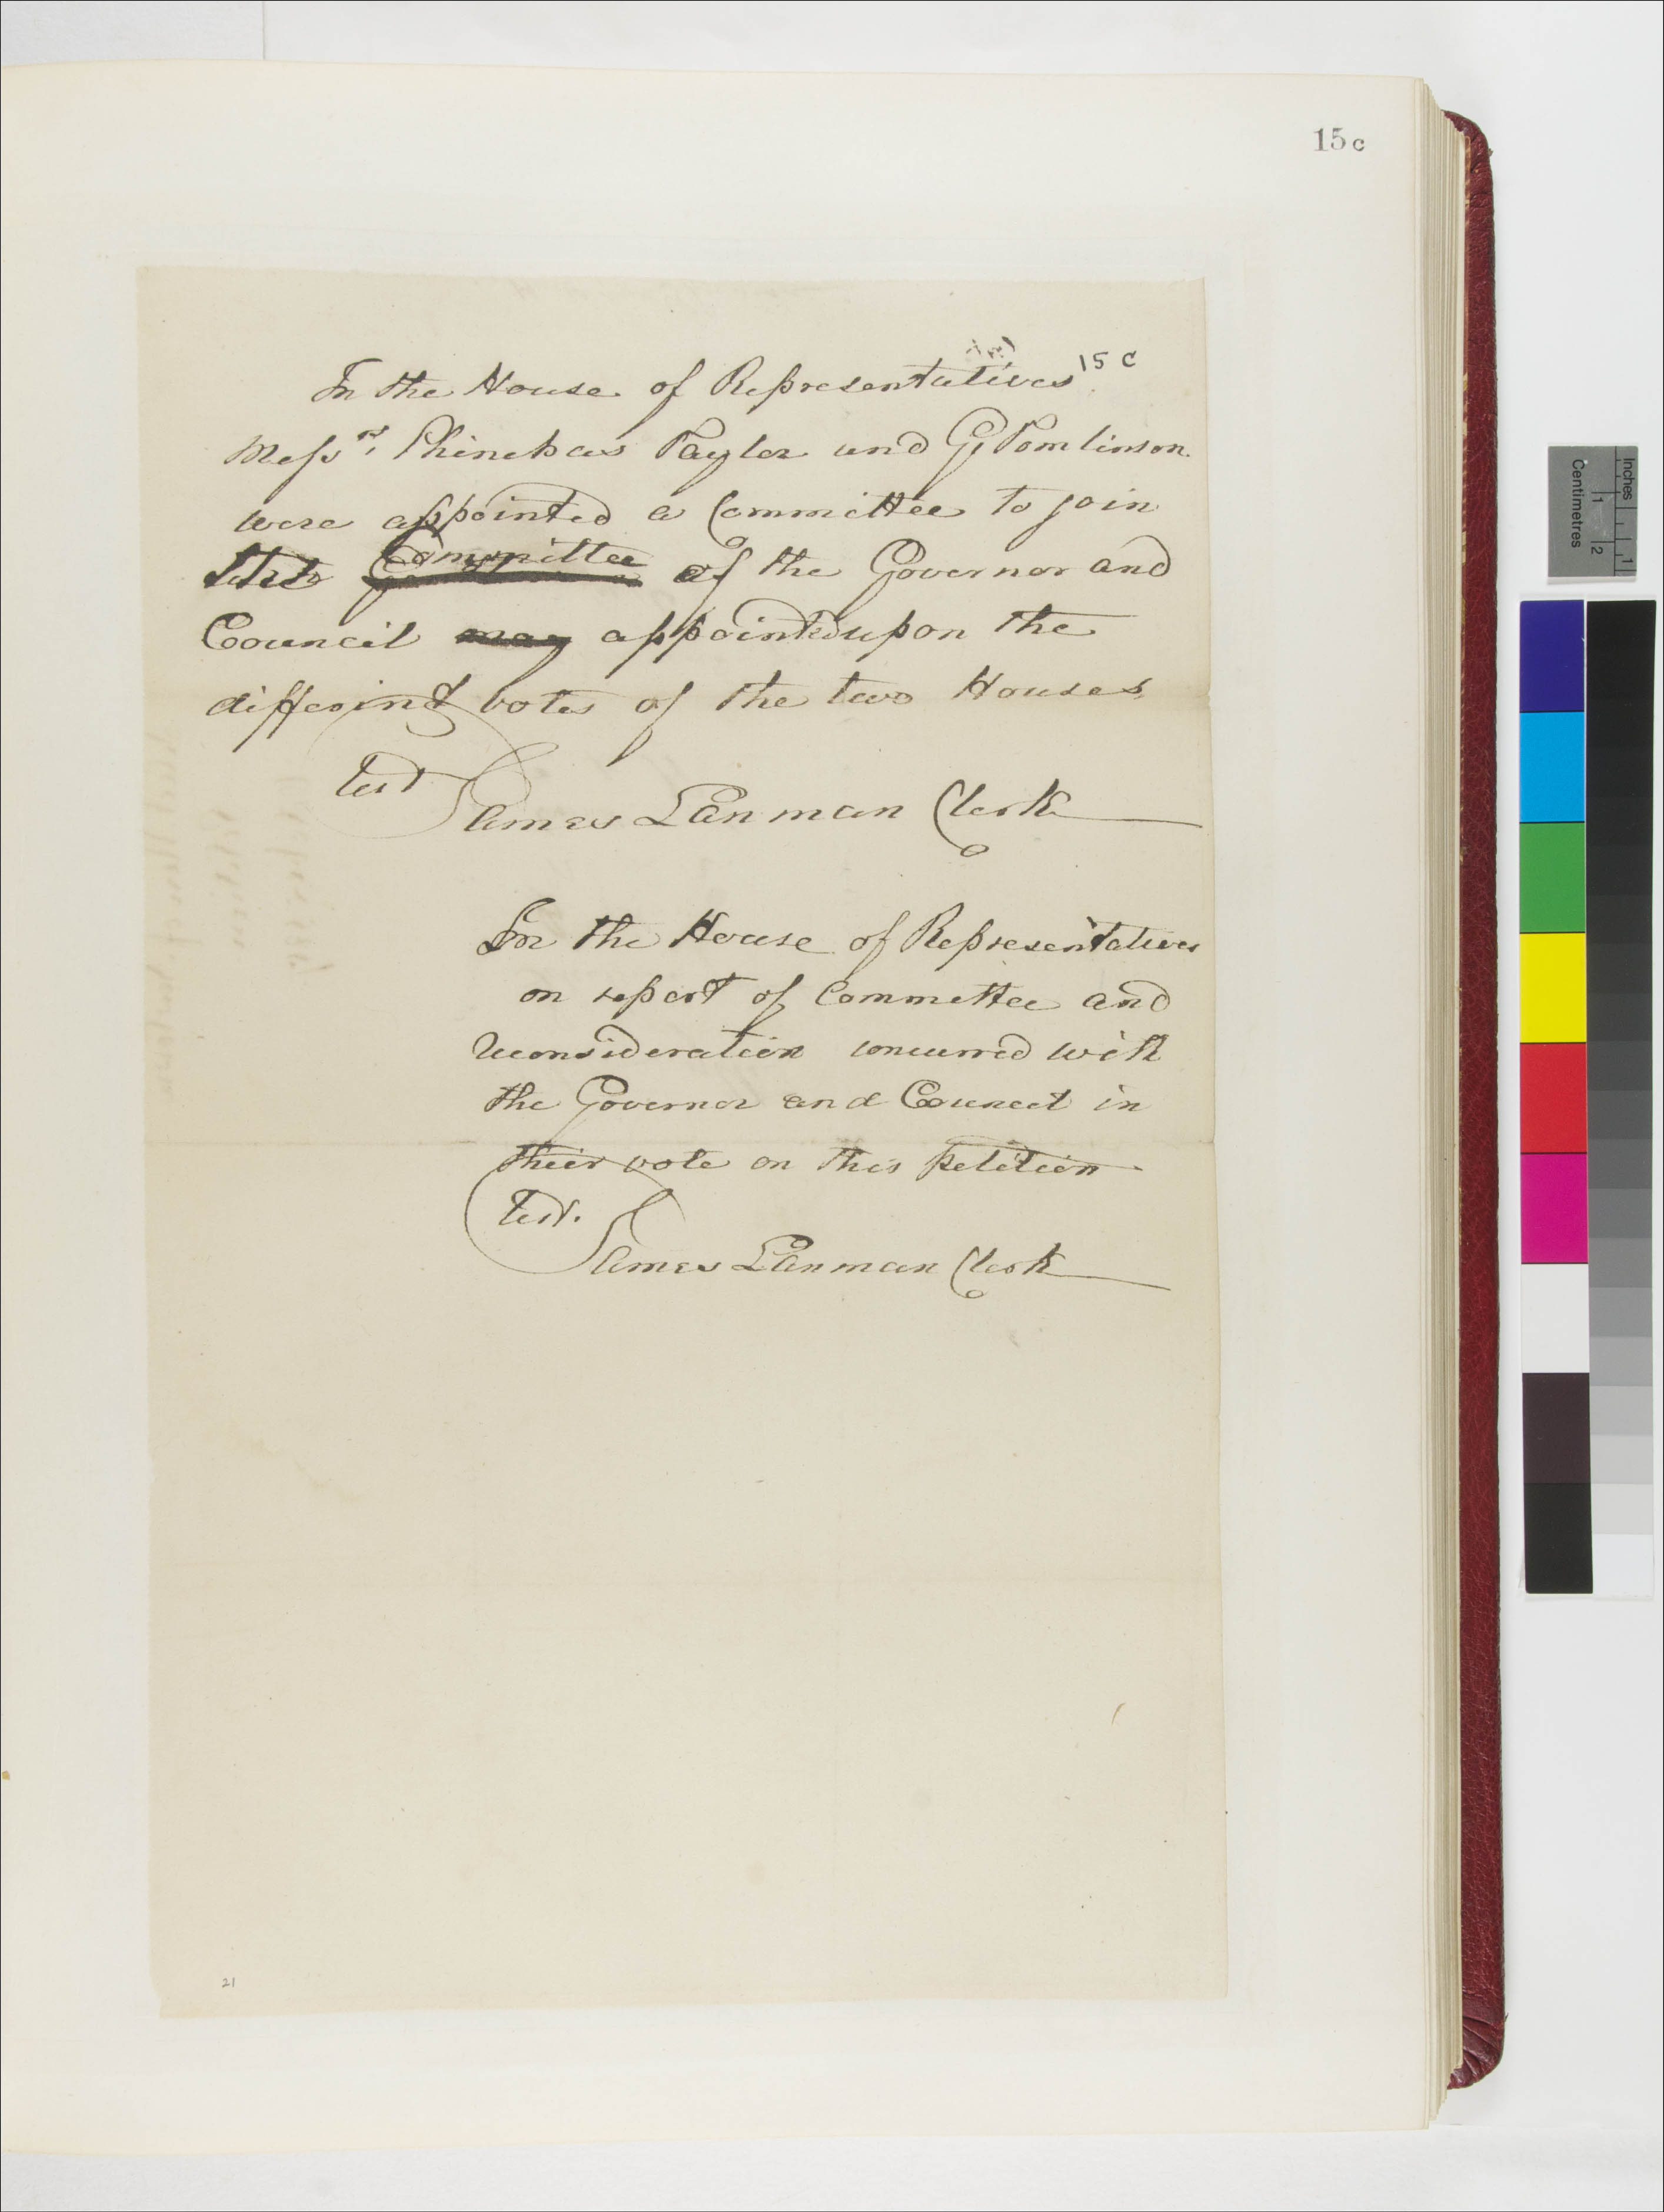 15 c
15 C
In the House of Representatives
Messrs. Phinehas Taylor and G Tomlinson
were appointed a Committee to join
Committee of the Governor and
Council may appointed upon the
differing votes of the two Houses
Test
James Lanman Clerk
In the House of Representatives
on report of Committee and
Reconsideration concurred with
the Governor and Council in
their vote on this petition
Test.
James Lanman Clerk
21
Inches
1
Centimetres
1
2